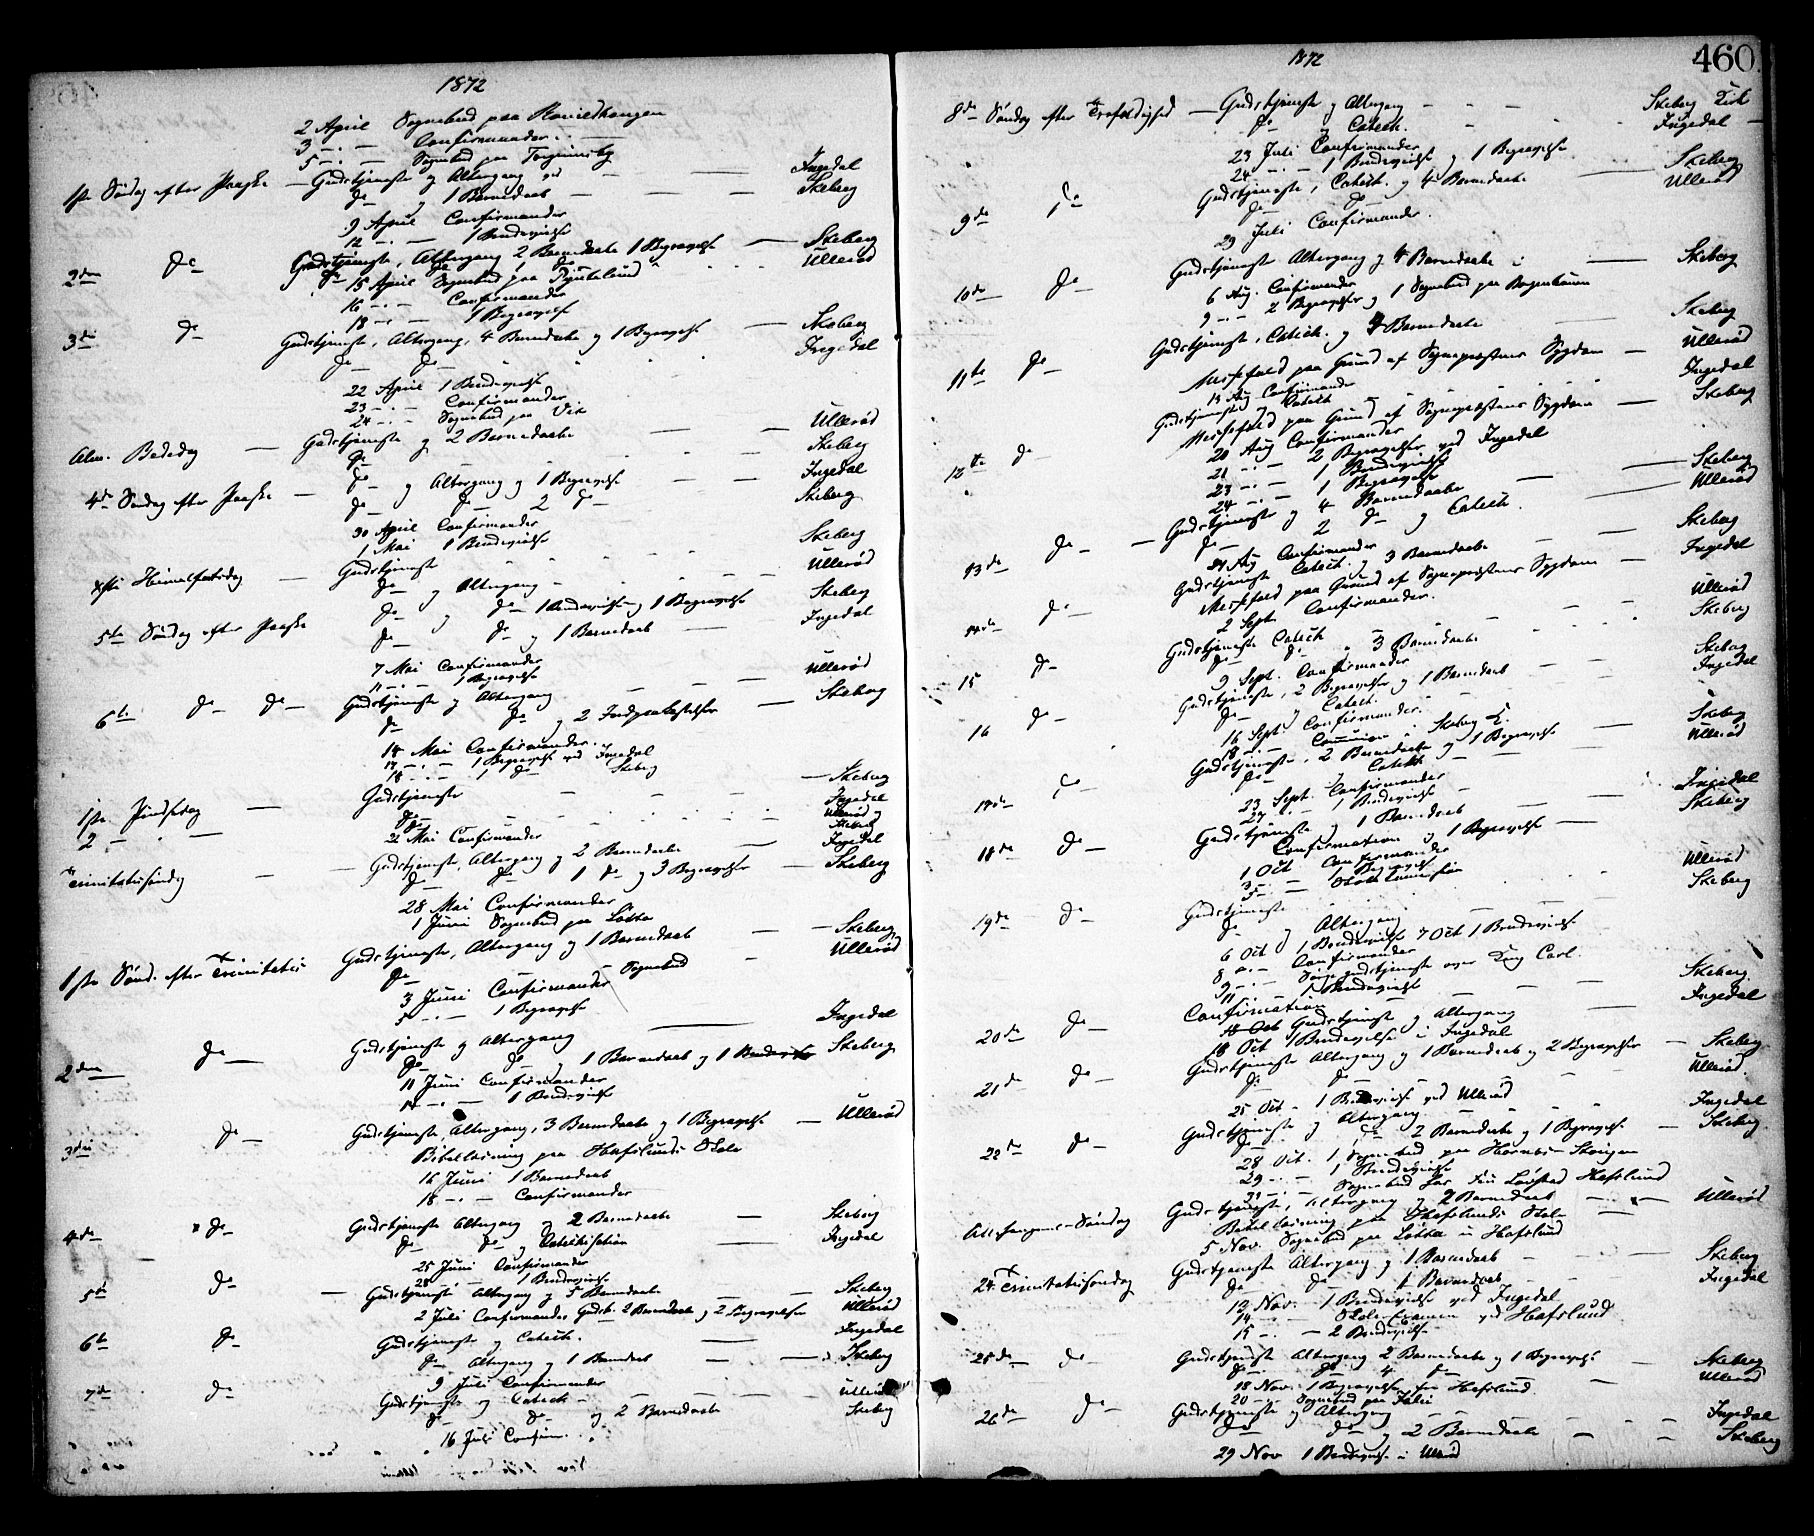 1872
2 April Sognebud paa
3 -"- Confirmander
5 -"- Sognebud paa
1ste Søndag efter Paaske - Gudstjeneste og Altergang Ingedal
do og 1 Barnedaab - Skeberg
9 April Confirmander
12 -"- 1 Brudevielse
2den do Gudstjeneste, Altergang 2 Barnedaabe 1 Begravelse - Skeberg
do do 1 do Ullerød
15 April Sognebud paa
16 -"- Confirmander
18 -"- 1 Begravelse
3die do Gudstjeneste, Altergang, 4 Barnedaabe og 1 Begravelse - Skeberg
do do Ingedal
22 April 1 Brudevielse
23 -"- Confirmander
24 -"- Sognebud paa Vik
Alm. Bededag - Gudstjeneste og 2 Barnedaabe - Ullerød
do Skeberg
4de Søndag efter Paaske - do og Altergang og 1 Begravelse - Ingedal
do do 2 do Skeberg
30 April Confirmander
1 Mai 1 Brudevielse
Xsti Himmelfartsdag - Gudstjeneste Skeberg
do og Altergang - Ullerød
5te Søndag efter Paaske do og do 1 Brudevielse og 1 Begravelse Skeberg
do do og 1 Barnedaab - Ingedal
7 Mai Confirmander
11 -"- 1 Begravelse
6te do do - Gudstjeneste og Altergang Ullerød
do do og 2 Skeberg
14 Mai Confirmander
17 -"- 1 Begravelse ved Ingedal
18 -"- 1 do Skeberg
1ste Pindsedag - Gudstjeneste - Skeberg
do Ingedal
2 - " - do Ullerød
do Skeberg
22 Mai Confirmander
Trinitatissøndag - Gudstjeneste, Altergang og 2 Barnedaabe - Ingedal
do do 1 do og 3 Begravelser - Skeberg
28 Mai Confirmander
1 Juni Sognebud paa Løkka
1ste Sønd. efter Trinitatis Gudstjeneste, Altergang og 1 Barnedaab - Skeberg
do Ullerød
3 Juni Confirmander - Sognebud
5 -"- 1 Begravelse
2den do - Gudstjeneste og Altergang - Ingedal
do do 1 Barnedaab og 1 Brudevielse Skeberg
11 Juni Confirmander
14 -"- 1 Brudevielse
3die do - Gudstjeneste, Altergang, 3 Barnedaabe og 1 Begravelse - Ullerød
Bibellæsning paa Hafslunds Skole
16 Juni 1 Barnedaab
18 -"- Confirmander
4de do - Gudstjeneste Altergang og 2 Barnedaabe - Skeberg
do do og Catekisation Ingedal
25 Juni Confirmander
28 - 1 Brudevielse
5te do - Gudstjeneste Altergang og 5 Barnedaabe - Skeberg
2 Juli Confirmander, Gudstj. 2 Barnedaabe og 2 Begravelser Ullerød
6te do Gudstjeneste og Catech. - Ingedal
do Altergang og 1 Barnedaab - Skeberg
9 Juli Confirmander
7de do Gudstjeneste og Catech - Ullerød
do do og 2 Barnedaabe Skeberg
16 Juli Confirm.
1872
460.
8de Søndag efter Trefoldighed - Gudstjeneste og Altergang - Skeberg Kirk
do og Catech. Ingedal
23 Juli Confirmander
24 -"- 1 Brudevielse og 1 Begravelse
9de do Gudstjeneste, Catech. og 4 Barnedaabe - Skeberg
do do Ullerød
29 Juli Confirmander.
10de do - Gudstjeneste Altergang og 4 Barnedaabe - Skeberg
6 Aug. Confirmander
9 -"- 2 Begravelser og 1 Sognebud paa
11te do - Gudstjeneste, Catech. og 4 Barnedaabe Skeberg
Messefald paa Grund af Sognepræstens Sygdom - Ullerød
13 Aug Confirmander
12te do - Gudstjeneste og Catech Ingedal
Messefald paa Grund af Sognepræstens Sygdom - Skeberg
20 Aug Confirmander
21 -"- 2 Begravelser ved Ingedal
23 -"- 1 Brudevielse
24 -"- 1 Begravelse
13de do - Gudstjeneste og 4 Barnedaabe - Skeberg
do - 2 do og Catech. Ullerød
Aug Confirmander
14de do - Gudstjeneste Catech. og 3 Barnedaabe - Skeberg
Messefald paa Grund af Sognepræstens Sygdom - Ingedal
2 Sept Confirmander.
15 do - Gudstjeneste Catech Ullerød
do - do - 3 Barnedaabe Skeberg
9 Sept. Confirmander
16 do - Gudstjeneste, 2 Begravelser og 1 Barnedaab Skeberg
do og Catech. Ingedal
16 Sept Confirmander.
18 -"- Communion i Skeberg K.
17de do Gudstjeneste, 2 Barnedaabe og 1 Begravelse - Skeberg
do Catech Ullerød
23 Sept. Confirmander
27 -"- 1 Brudevielse
18de do - Gudstjeneste og 1 Barnedaab Ingedal
Confirmation og 1 Begravelse - Skeberg
1 Oct Confirmander
3 -"- 1 Begravelse
5 -"-
19de do - Gudstjeneste Ullerød
do og Altergang Skeberg
6 Oct 1 Brudevielse 7 Oct 1 Brudevielse
8 -"- Confirmander
9 -"- Sørgegudstjeneste over Kong Carl.
11 1 Brudevielse
20de do - Confirmation - Skeberg
Gudstjeneste og Altergang - Ingedal
18 Oct 1 Brudevielse i Ingedal
21de do - Gudstjeneste Altergang og 1 Barnedaab og 2 Begravelser - Skeberg
do do - Ullerød
25 Oct - 1 Brudevielse ved Ullerød
22de do - Gudstjeneste og Altergang - Ingedal
do - do 2 Barnedaabe og 1 Begravelse - Skeberg
28 Oct. 1 Sognebud paa
29 -"- 1 Brudevielse
31 -"- Sognebud Hafslund
Allehelgens-Søndag Gudstjeneste, Altergang og 2 Barnedaab - Ullerød
Bibellæsning paa Hafslunds Skole
5 Nov. Sognebud paa Løkka u Hafslund
24 Trinitatissøndag Gudstjeneste Altergang og 1 Barnedaab - Skeberg
do - do 1 Barnedaab - Ingedal
12 Nov. - 1 Brudevielse ved Ingedal
14 - Skole-Examen ved Hafslund
15 -"- 2 Brudevielse
25de do - Gudstjeneste Altergang 2 Barnedaabe og 1 Begravelse - Skeberg
do - do - 4 do - Ullerød
18 Nov. 1 Begravelse fra Hafslund
20 - Sognebud paa
26de do - Gudstjeneste og Altergang Ingedal
do do og 2 Barnedaabe - Skeberg
29 Nov 1 Brudevielse i Ullerød